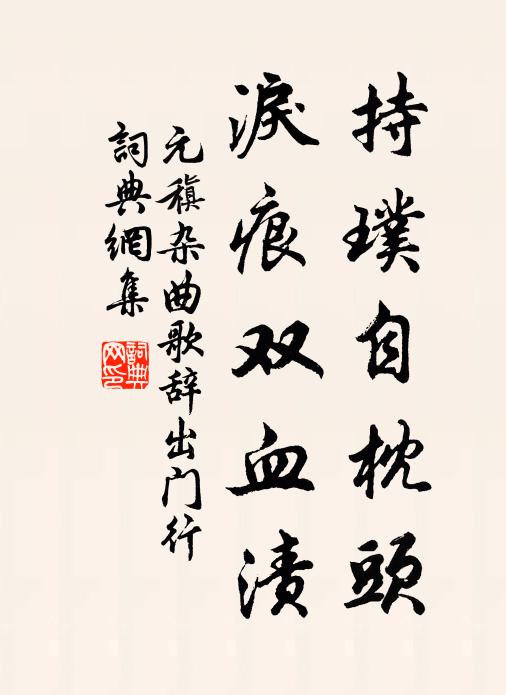 持璞自枕頭
淚痕双血漬
元稹杂曲歌辞出门行
詞典網集
詞典
网印